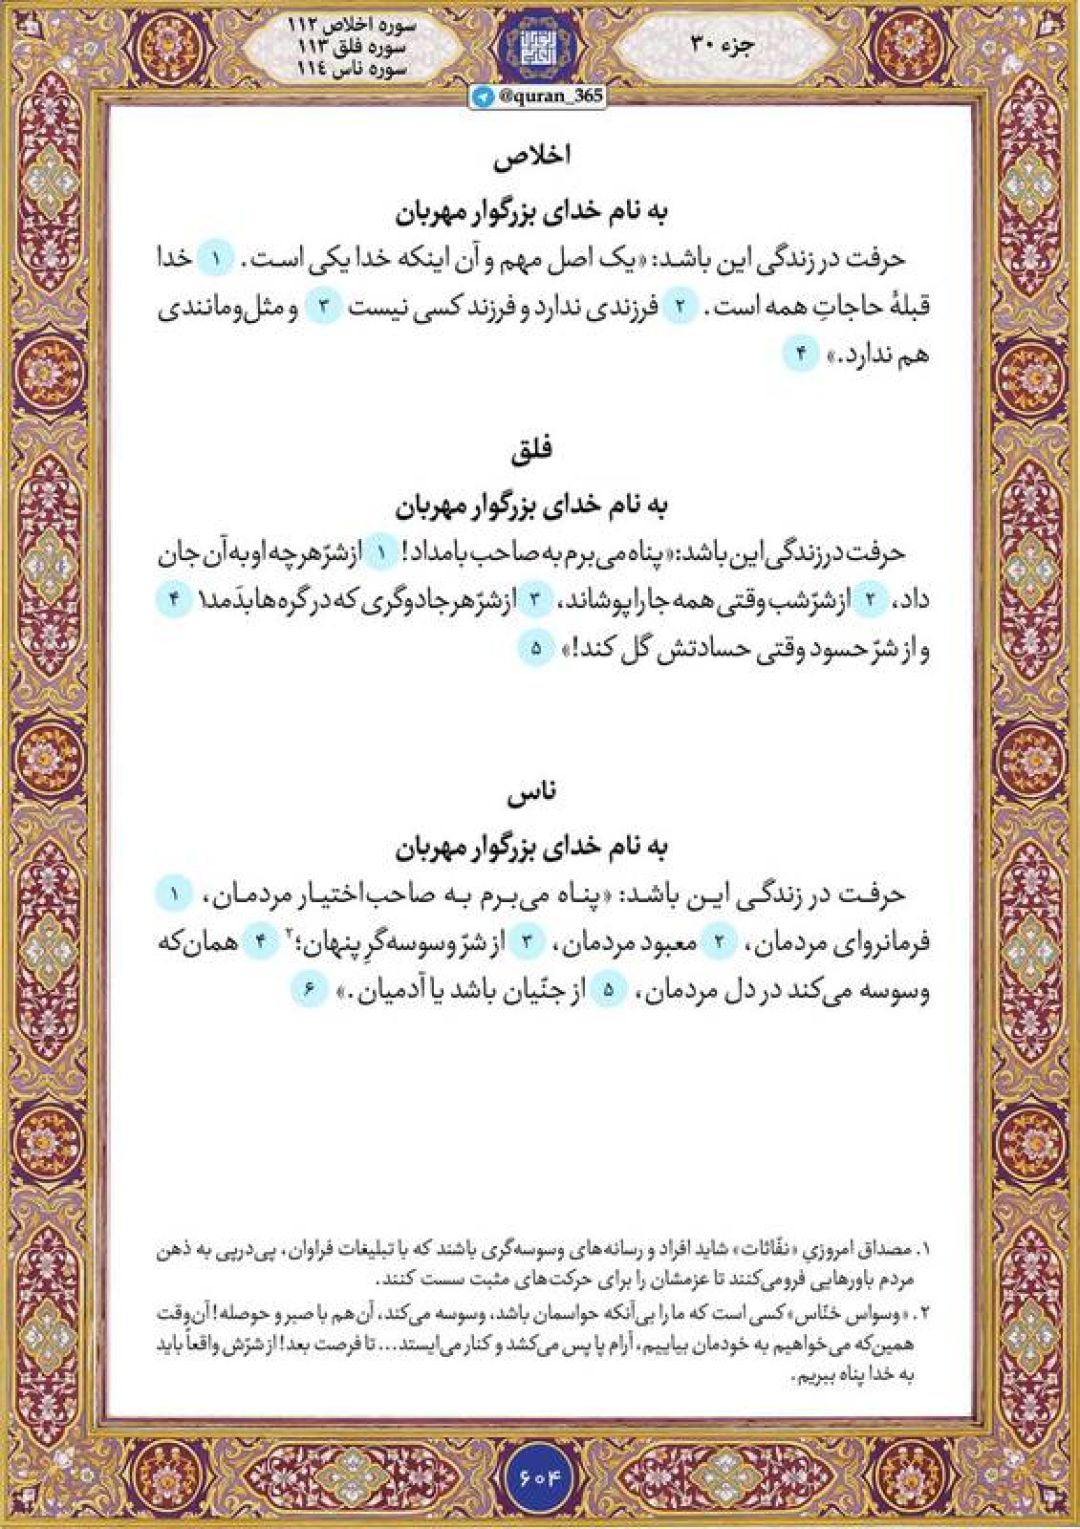 جزء ۳۰
سوره اخلاص ۱۱۲
سوره فلق ۱۱۳
سوره ناس ۱۱٤
@quran_365
اخلاص
به نام خدای بزرگوار مهربان
حرفت در زندگی این باشد: «یک اصل مهم و آن اینکه خدا یکی است. ۱ خدا
قبلهٔ حاجاتِ همه است. ۲ فرزندی ندارد و فرزند کسی نیست ۳ و مثل‌ومانندی
هم ندارد.» ۴
فلق
به نام خدای بزرگوار مهربان
حرفت در زندگی این باشد: «پناه می‌برم به صاحب بامداد! ۱ از شرّ هرچه او به آن جان
داد، ۲ از شرّ شب وقتی همه جا را پوشاند، ۳ از شرّ هر جادوگری که در گره‌ها بدَمد۱ ۴
و از شرّ حسود وقتی حسادتش گل کند!» ۵
ناس
به نام خدای بزرگوار مهربان
حرفت در زندگی این باشد: «پناه می‌برم به صاحب‌اختیار مردمان، ۱
فرمانروای مردمان، ۲ معبود مردمان، ۳ از شرّ وسوسه‌گرِ پنهان؛۲ ۴ همان‌که
وسوسه می‌کند در دل مردمان، ۵ از جنّیان باشد یا آدمیان.» ۶
۱. مصداق امروزیِ «نفّاثات» شاید افراد و رسانه‌های وسوسه‌گری باشند که با تبلیغات فراوان، پی‌درپی به ذهن
مردم باورهایی فرومی‌کنند تا عزمشان را برای حرکت‌های مثبت سست کنند.
۲. «وسواس خنّاس» کسی است که ما را بی‌آنکه حواسمان باشد، وسوسه می‌کند، آن هم با صبر و حوصله! آن‌وقت
همین‌که می‌خواهیم به خودمان بیاییم، آرام پا پس می‌کشد و کنار می‌ایستد... تا فرصت بعد! از شرّش واقعاً باید
به خدا پناه ببریم.
۶۰۴